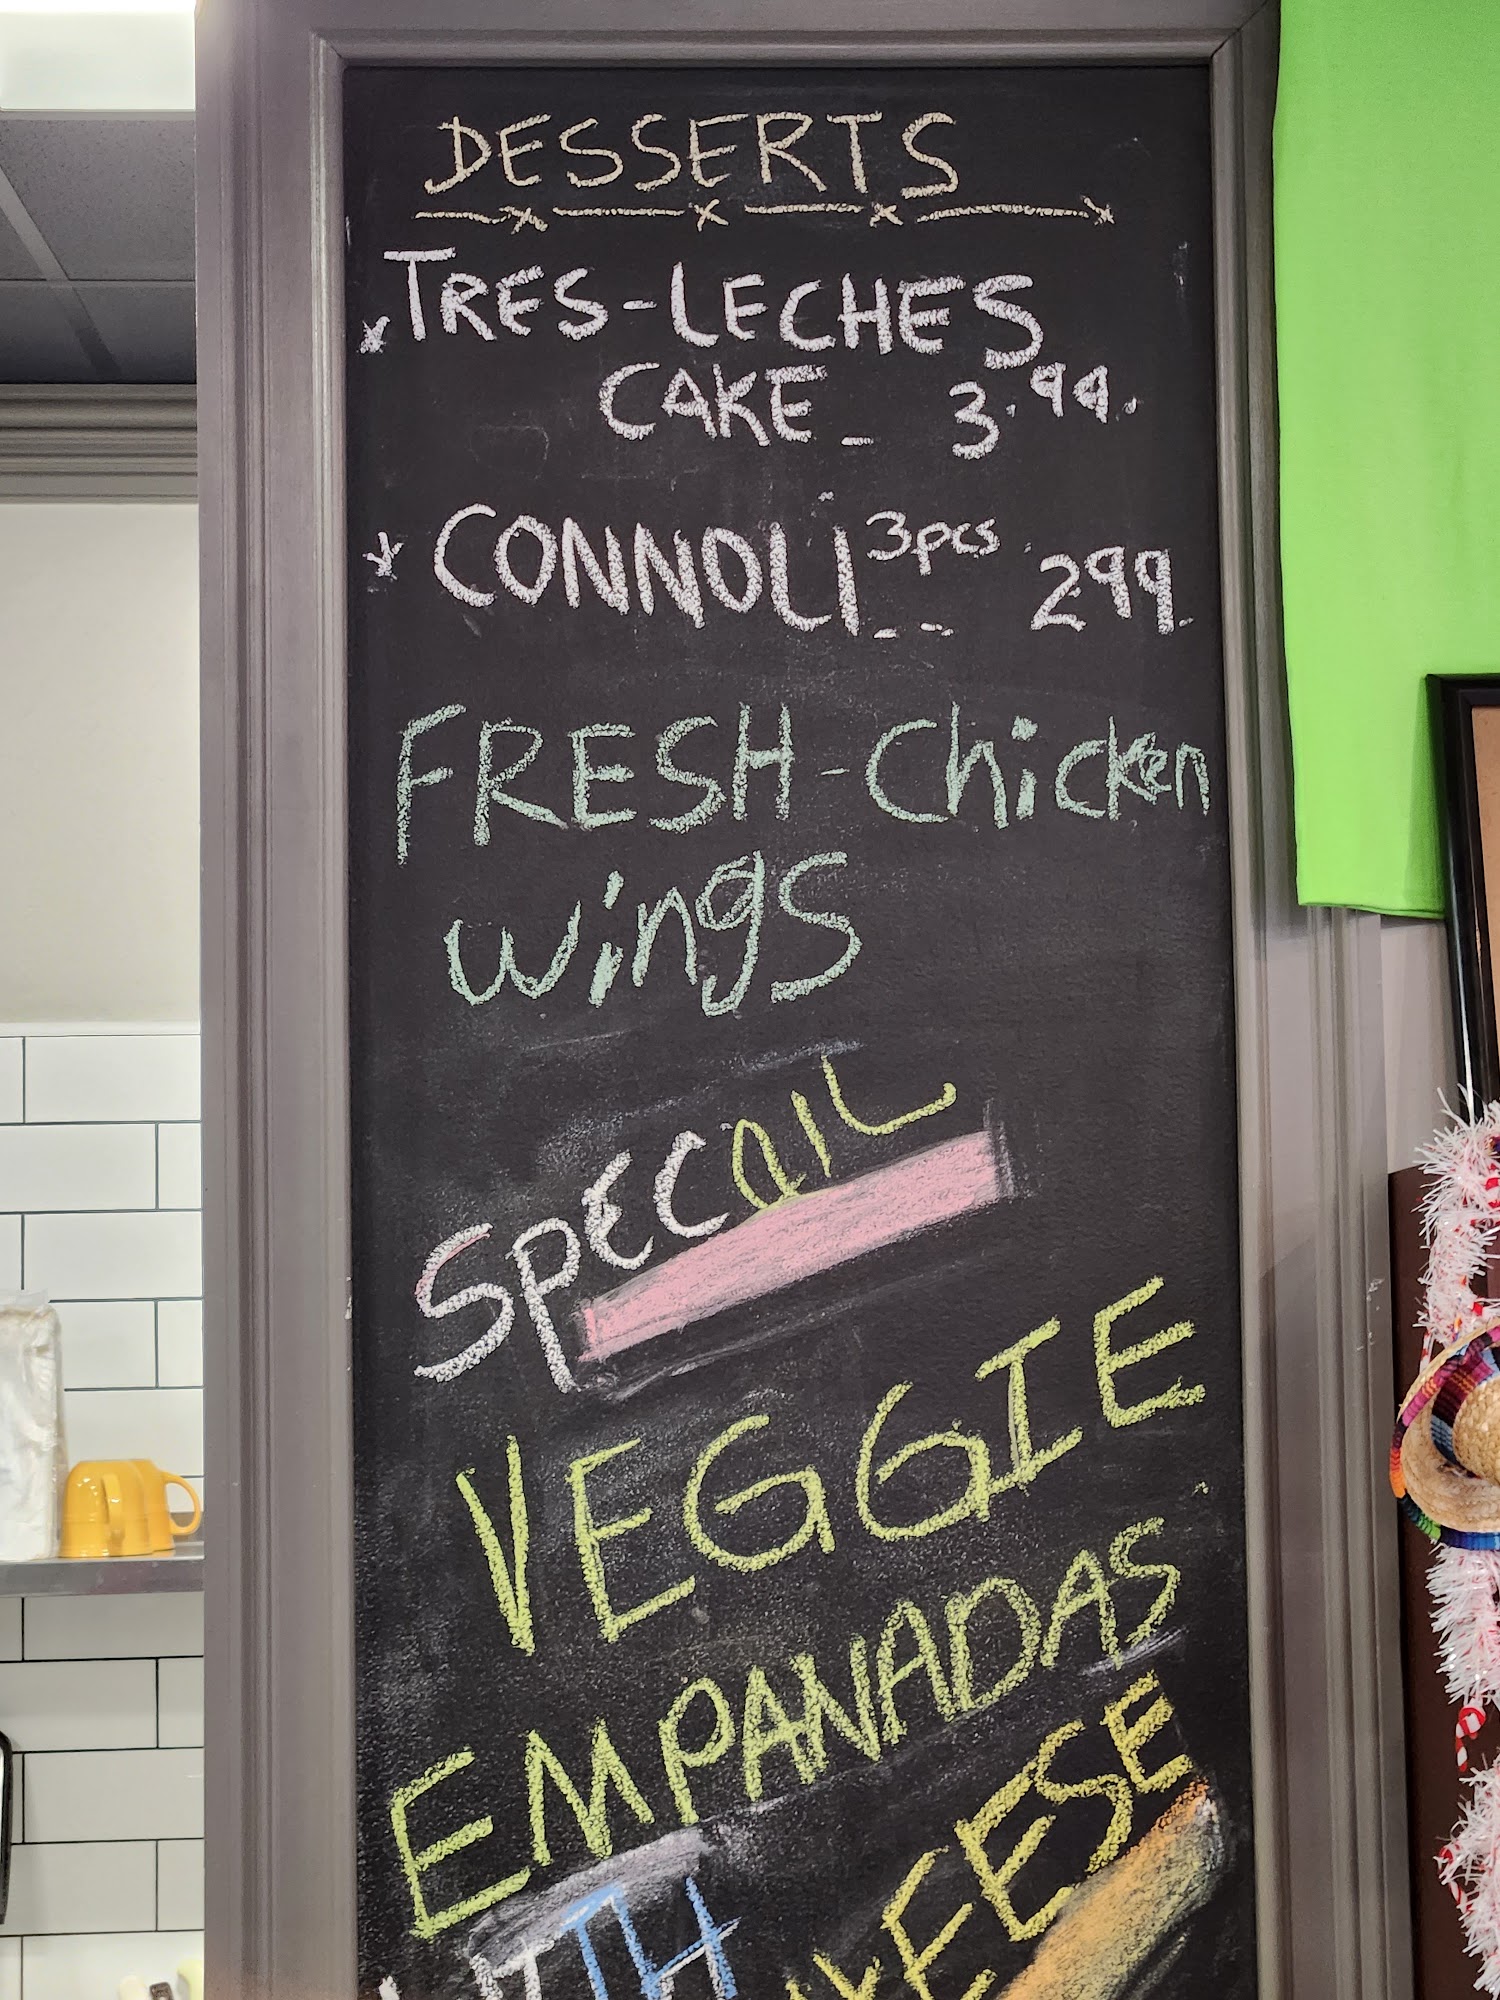 DESSERTS
* TRES-LECHES
CAKE _ 3.99.
* CONNOLI 3pcs _ _ 299.
FRESH-Chicken
wings
SPECAIL
VEGGIE
EMPANADAS
WITH